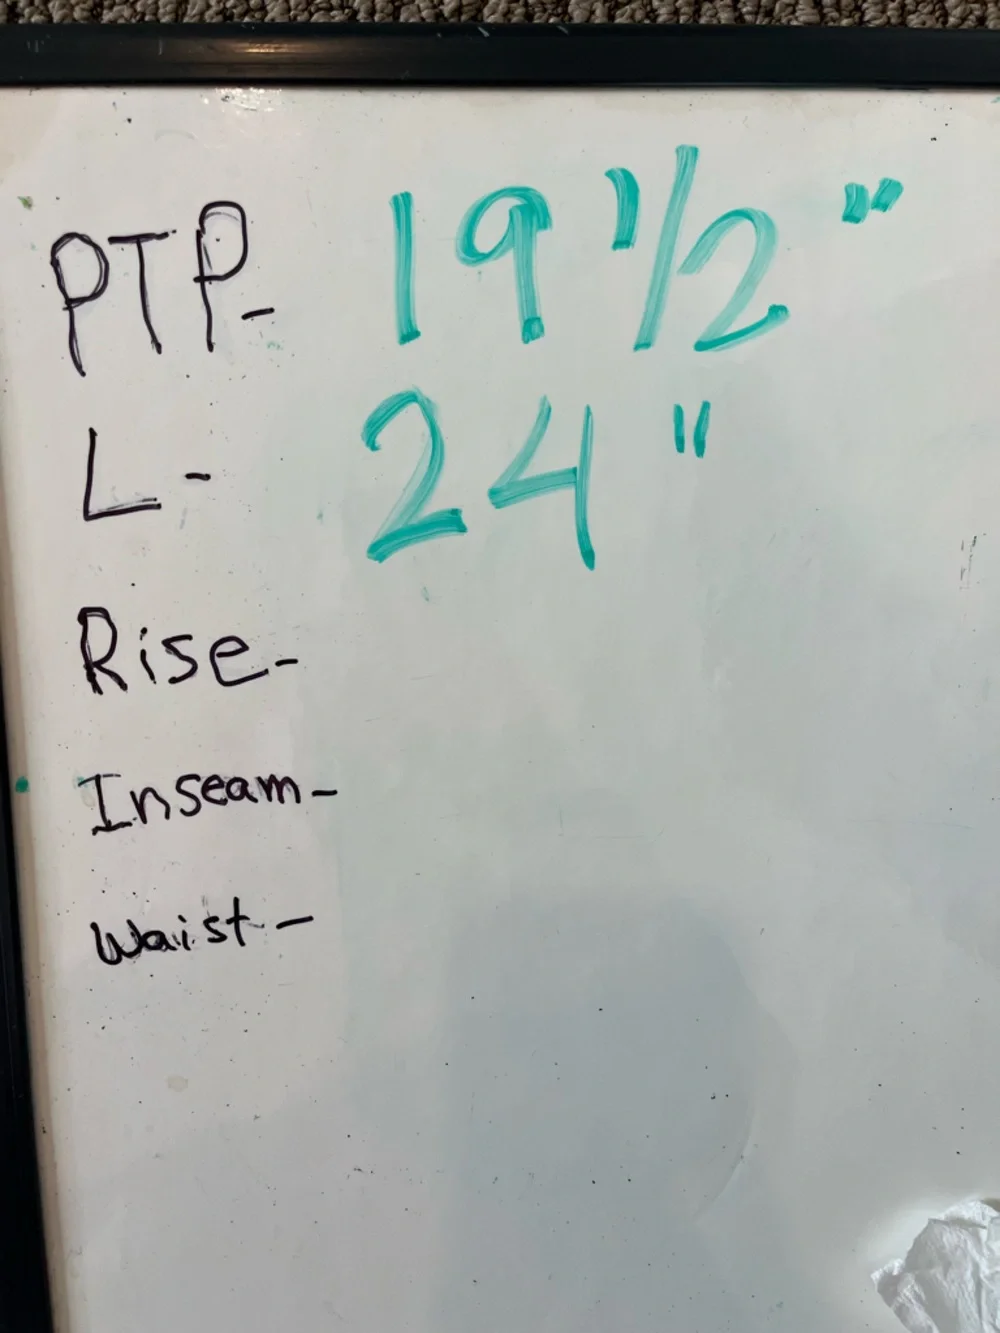 PTP- 19 1/2"
L- 24"
Rise-
Inseam-
Waist-